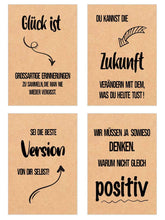 Glück ist
GROSSARTIGE ERINNERUNGEN
ZU SAMMELN, DIE MAN NIE
WIEDER VERGISST.
DU KANNST DIE
Zukunft
VERÄNDERN MIT DEM,
WAS DU HEUTE TUST!
SEI DIE BESTE
Version
VON DIR SELBST!
WIR MÜSSEN JA SOWIESO
DENKEN.
WARUM NICHT GLEICH
positiv